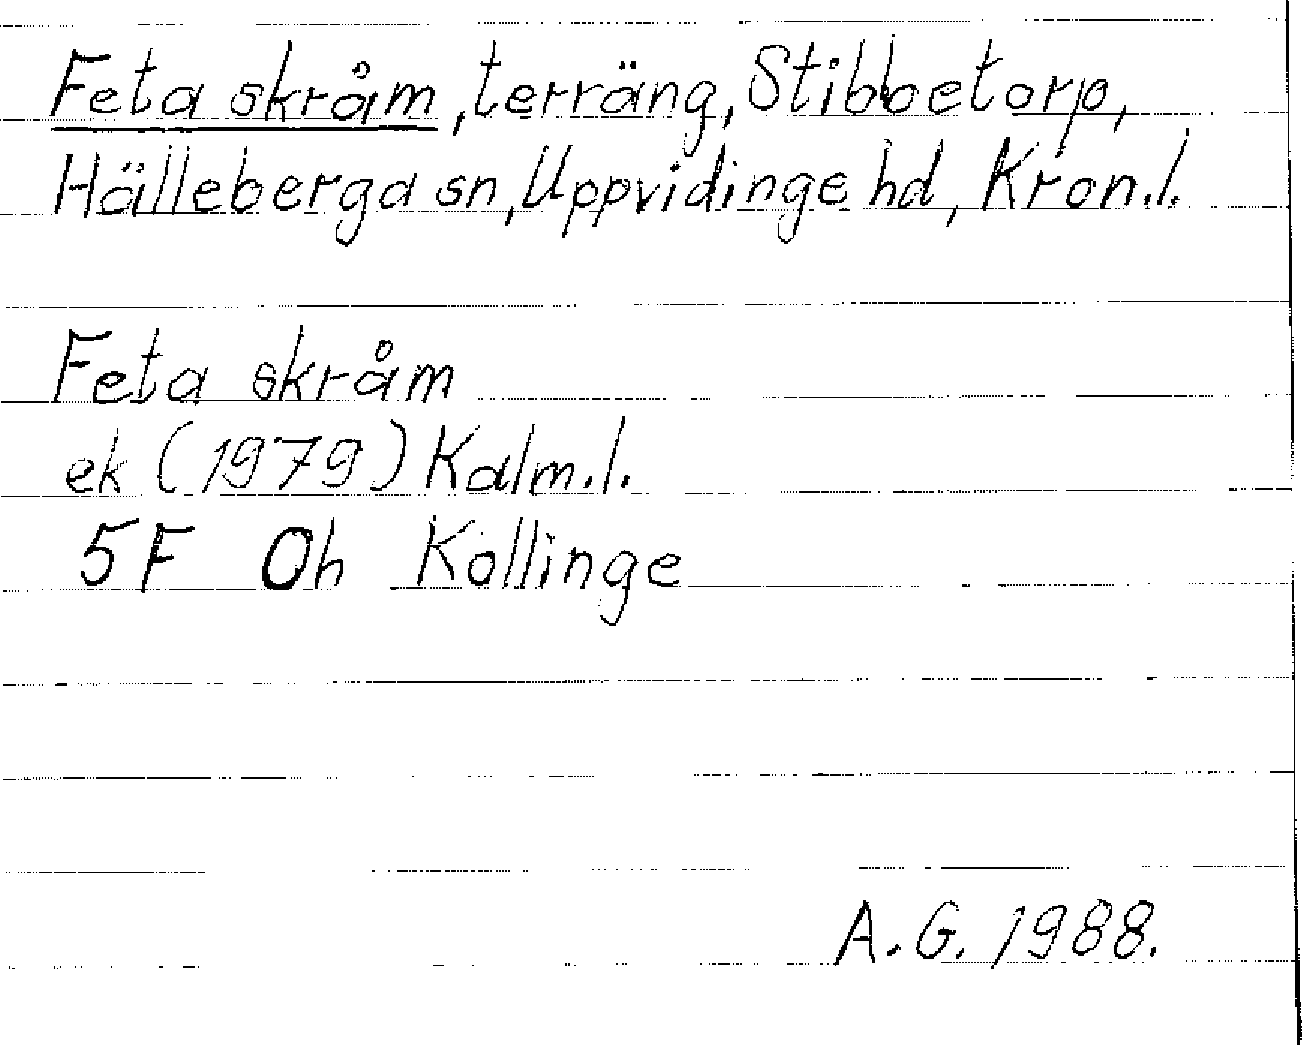 Feta skråm, terräng, Stibbetorp,
Hälleberga sn, Uppvidinge hd, Kron.l.
Feta skråm
ek (1979) Kalm.l.
5F 0h Kollinge
A.G. 1988.